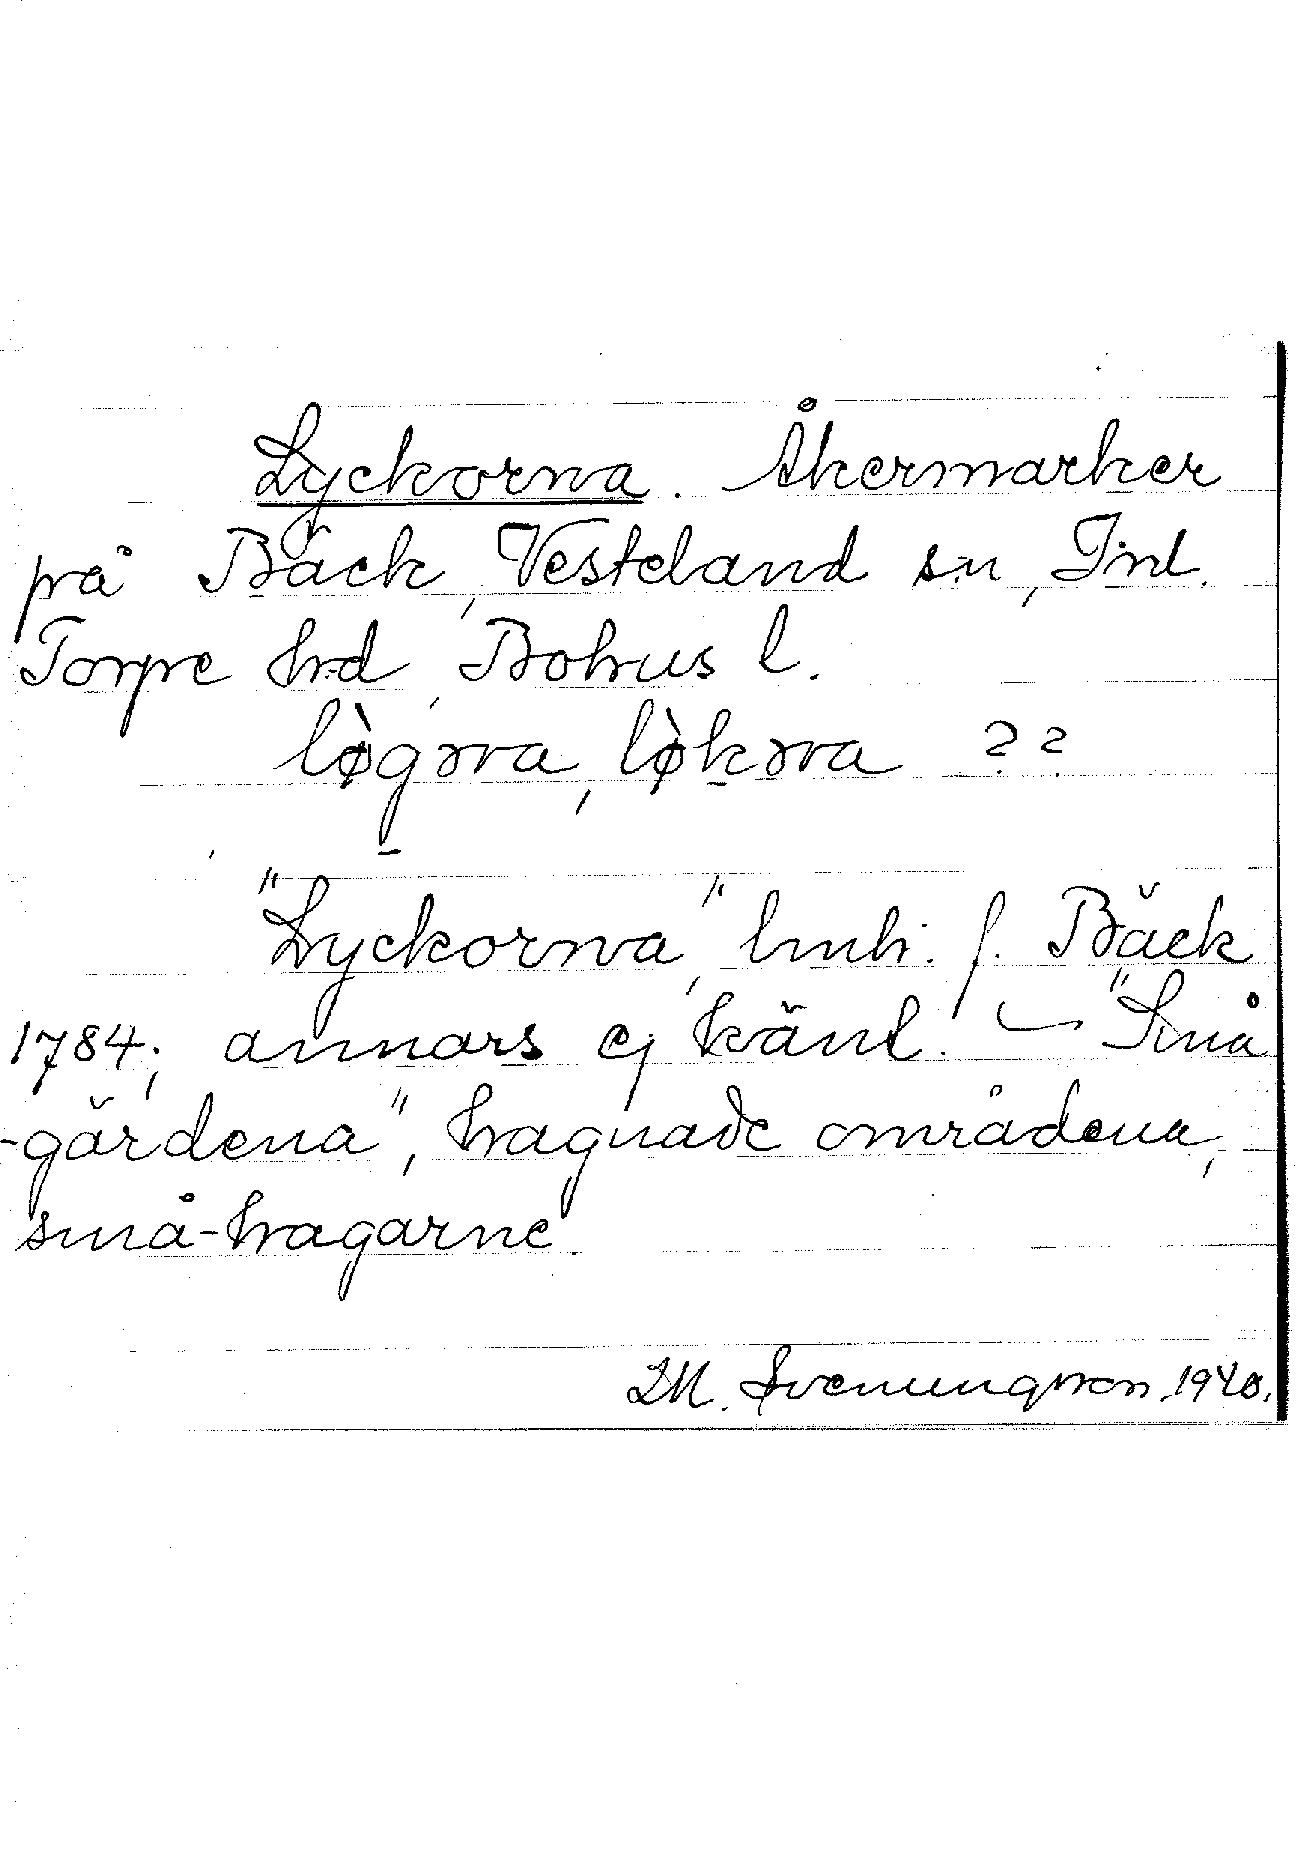 Lyckorna. Åkermarker
på Bäck, Vesterland s:n, Inl.
Torpe h:d, Bohus l.
lø̀gɔrna, lø̀kɔrna ??
"Lyckorna", lmh. f. Bäck
1784; annars ej känt. – "Små
-gärdena", hagnade områdena,
små-hagarne.
M. Svenungsson 1940.